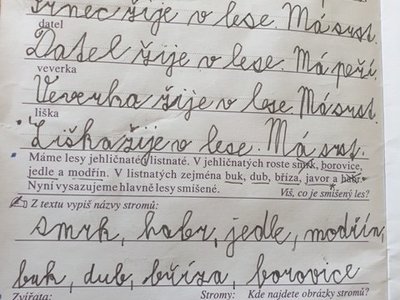 Srnec žije v lese. Má srst.
datel
Datel žije v lese. Má peří.
veverka
Veverka žije v lese. Má srst.
liška
Liška žije v lese. Má srst.
Máme lesy jehličnaté i listnaté. V jehličnatých roste smrk, borovice,
jedle a modřín. V listnatých zejména buk, dub, bříza, javor a habr.
Nyní vysazujeme hlavně lesy smíšené. Víš, co je smíšený les?
Z textu vypiš názvy stromů:
smrk, habr, jedle, modřín,
buk, dub, bříza, borovice
Zvířata: Stromy: Kde najdete obrázky stromů?